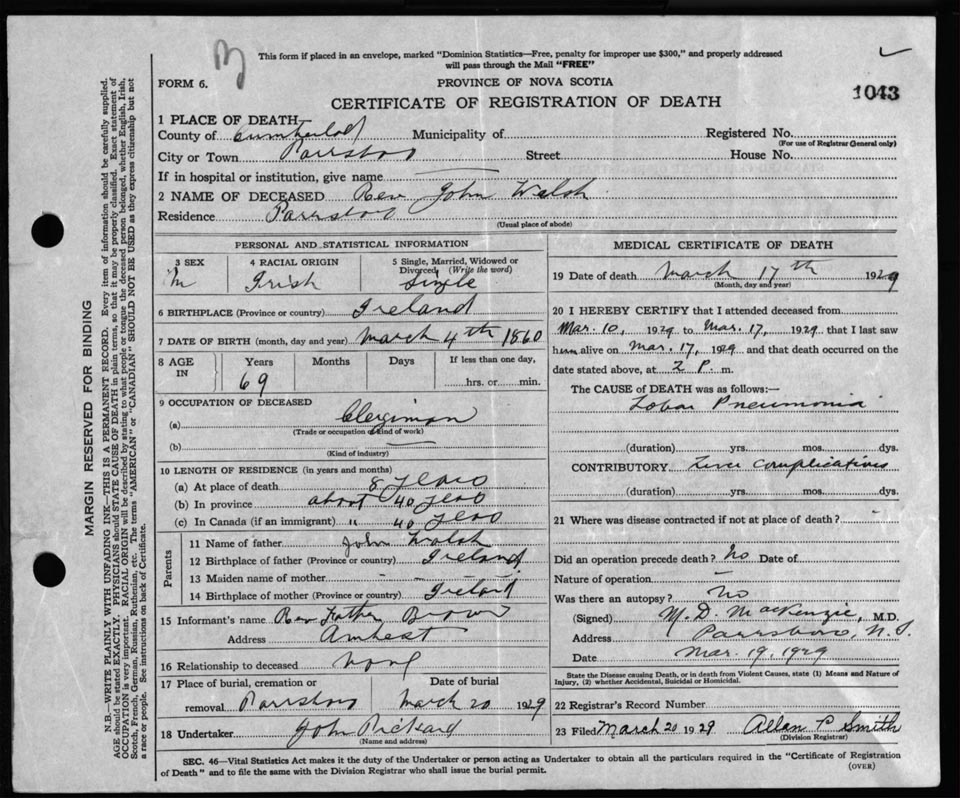 This form if placed in an envelope, marked "Dominion Statistics—Free, penalty for improper use $300," and properly addressed
will pass through the Mail "FREE"
FORM 6.
PROVINCE OF NOVA SCOTIA
CERTIFICATE OF REGISTRATION OF DEATH
1043
1 PLACE OF DEATH—
County of Cumberland Municipality of Registered No.
(For use of Registrar General only)
City or Town Parrsboro Street House No.
If in hospital or institution, give name
2 NAME OF DECEASED Rev John Walsh
Residence Parrsboro
(Usual place of abode)
PERSONAL AND STATISTICAL INFORMATION
3 SEX 4 RACIAL ORIGIN 5 Single, Married, Widowed or
Divorced (Write the word)
M Irish Single
6 BIRTHPLACE (Province or country) Ireland
7 DATE OF BIRTH (month, day and year) March 4th 1860
8 AGE IN Years Months Days If less than one day,
69 hrs. or min.
9 OCCUPATION OF DECEASED
(a) Clergiman
(Trade or occupation or kind of work)
(b)
(Kind of industry)
10 LENGTH OF RESIDENCE (in years and months)
(a) At place of death 8 years
(b) In province about 40 years
(c) In Canada (if an immigrant) " 40 years
Parents
11 Name of father John Walsh
12 Birthplace of father (Province or country) Ireland
13 Maiden name of mother —
14 Birthplace of mother (Province or country) Ireland
15 Informant's name Rev Father Brown
Address Amherst
16 Relationship to deceased none
17 Place of burial, cremation or Date of burial
removal Parrsboro March 20 1929
18 Undertaker John Rickard
(Name and address)
MEDICAL CERTIFICATE OF DEATH
19 Date of death March 17th 1929
(Month, day and year)
20 I HEREBY CERTIFY that I attended deceased from
Mar. 10, 1929 to Mar. 17, 1929 that I last saw
him alive on Mar. 17, 1929 and that death occurred on the
date stated above, at 2 P. m.
The CAUSE of DEATH was as follows:—
Lobar Pneumonia
(duration) yrs. mos. dys.
CONTRIBUTORY complications
(duration) yrs. mos. dys.
21 Where was disease contracted if not at place of death? -
Did an operation precede death? No Date of
Nature of operation —
Was there an autopsy? No
(Signed) M. D. MacKenzie, M.D.
Address Parrsboro, N.S.
Date Mar. 19, 1929
State the Disease causing Death, or in death from Violent Causes, state (1) Means and Nature of
Injury, (2) whether Accidental, Suicidal or Homicidal.
22 Registrar's Record Number
23 Filed March 20 1929 Allan P Smith
(Division Registrar)
SEC. 46—Vital Statistics Act makes it the duty of the Undertaker or person acting as Undertaker to obtain all the particulars required in the "Certificate of Registration
of Death" and to file the same with the Division Registrar who shall issue the burial permit.
(OVER)
MARGIN RESERVED FOR BINDING
N.B.—WRITE PLAINLY WITH UNFADING INK—THIS IS A PERMANENT RECORD. Every item of information should be carefully supplied.
AGE should be stated EXACTLY. PHYSICIANS should STATE CAUSE OF DEATH in plain terms, so that it may be properly classified. Exact statement of
OCCUPATION is very important. RACIAL ORIGIN will be described by stating to what people or tongue the deceased person belonged, whether English, Irish,
Scotch, French, German, Russian, Ruthenian, etc. The terms "AMERICAN" or "CANADIAN" SHOULD NOT BE USED as they express citizenship but not
a race or people. See instructions on back of Certificate.